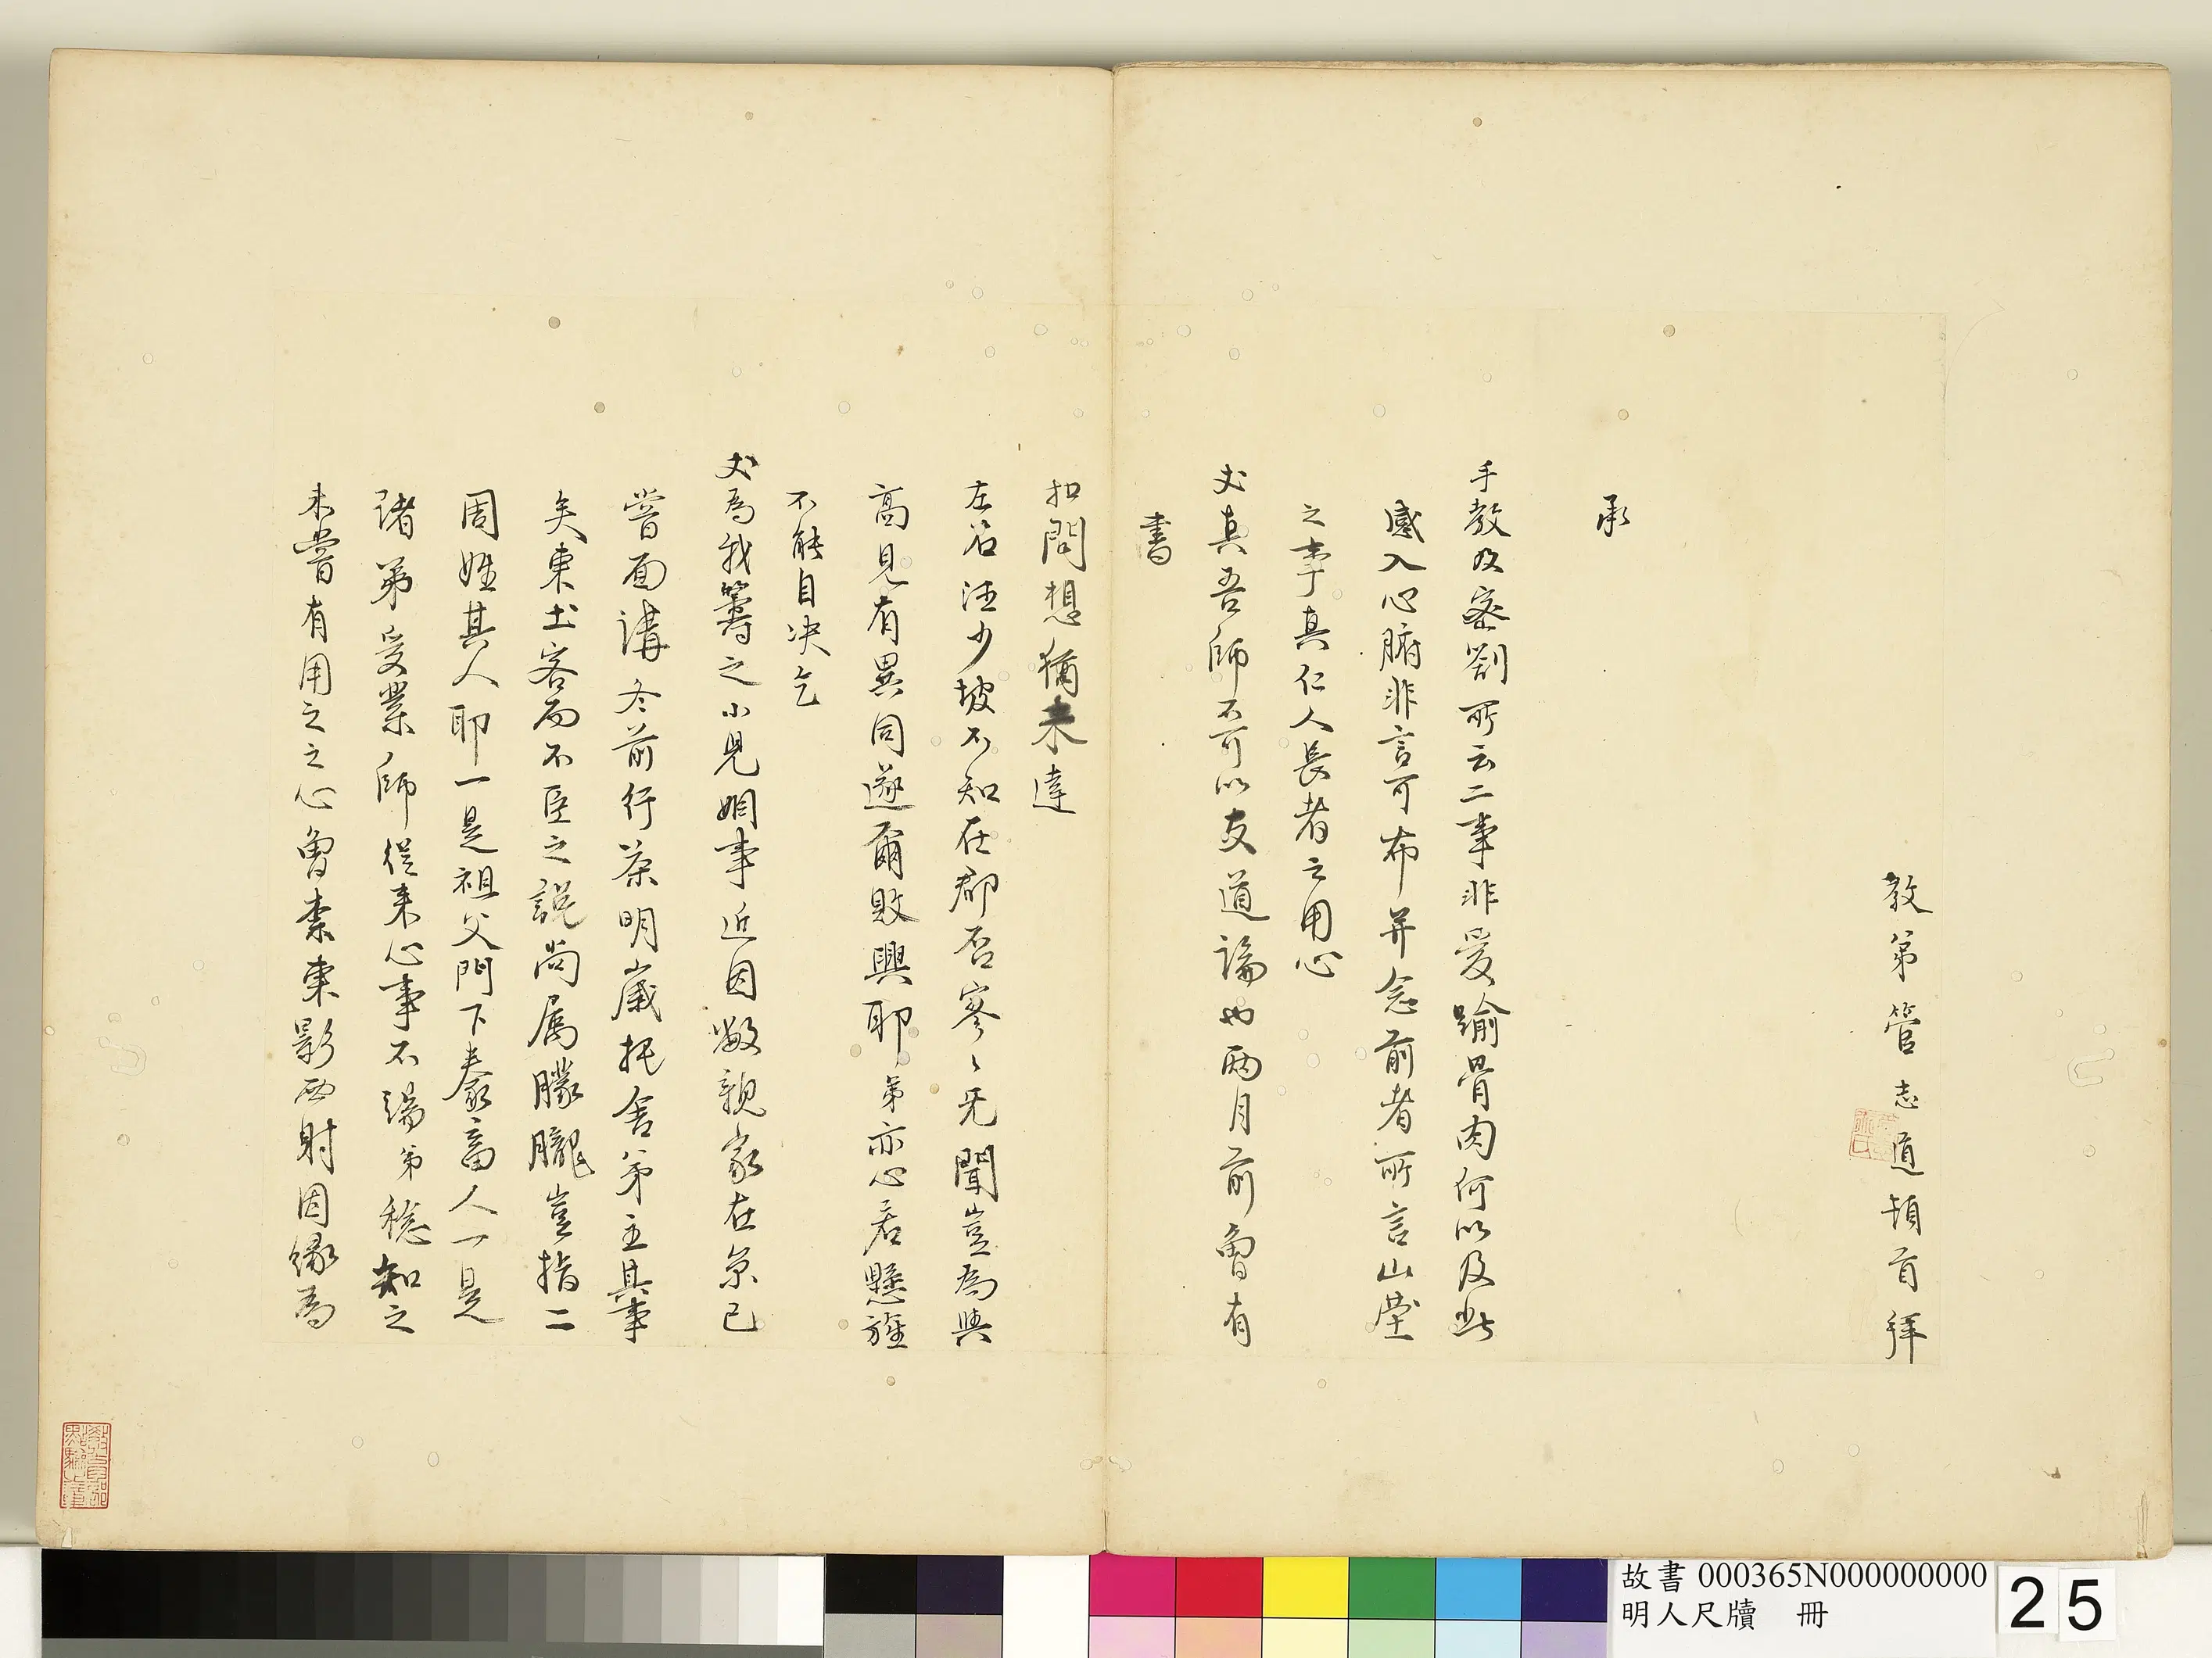 教弟管志道頓首拜
承
手教及密劄所云二事非愛踰骨肉何以及此
感入心腑非言可布并念前者所言山塋
之事真仁人長者之用心
丈真吾師不可以友道論也兩月前曾有
書
扣問想猶未達
左右汪少坡不知在郡否寥々無聞豈為與
高見有異同遂爾敗興耶弟亦心若懸旌
不能自決乞
丈為我籌之小兒姻事近因敝親家在京已
嘗面講冬前行茶明歲托舍弟主其事
矣東土客而不臣之說尚屬朦朧豈指二
周姓其人耶一是祖父門下豢畜人一是
諸弟受業師從來心事不端弟稔知之
未嘗有用之之心曾柬東影西射因緣為
故書 000365N000000000
明人尺牘 冊
25